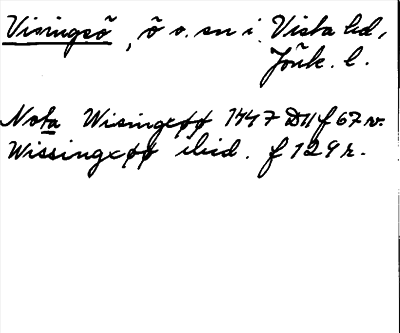 Visingsö, ö o. sn i. Vista hd,
Jönk. l.
Nota Wisingxøø 1447 D11 f 67 v.
Wissingxøø ibid. f 129 r.